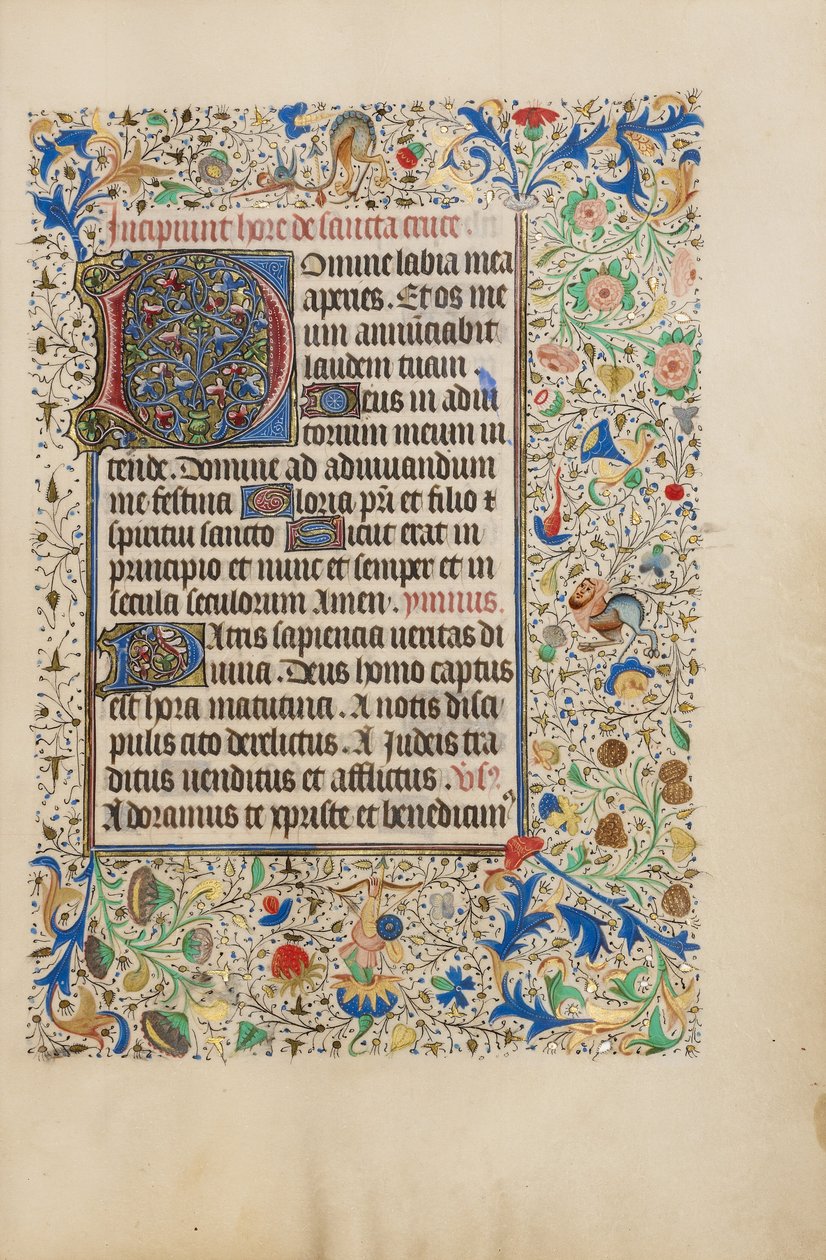 Incipiunt hore de sancta cruce.
Domine labia mea
aperies. Et os me
um annūciabit
laudem tuam.
Deus in adiu
torium meum in
tende. Domine ad adiuuandum
me festina Gloria pr̄i et filio ⁊
spiritui sancto Sicut erat in
principio et nunc et semper et in
secula seculorum Amen. ymnus.
Patris sapiencia ueritas di
uina. Deus homo captus
est hora matutina. A notis disci
pulis cito derelictus. A Iudeis tra
ditus uenditus et afflictus. v̄s
Adoramus te xpriste et benedicim⁹